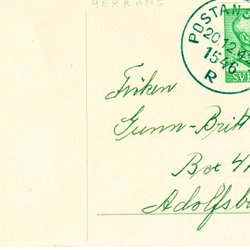 HERRÄNG
POSTANS
20.12.4
1546
R
SVE
Fröken
Gunn-Britt
Box 41
Adolfsb